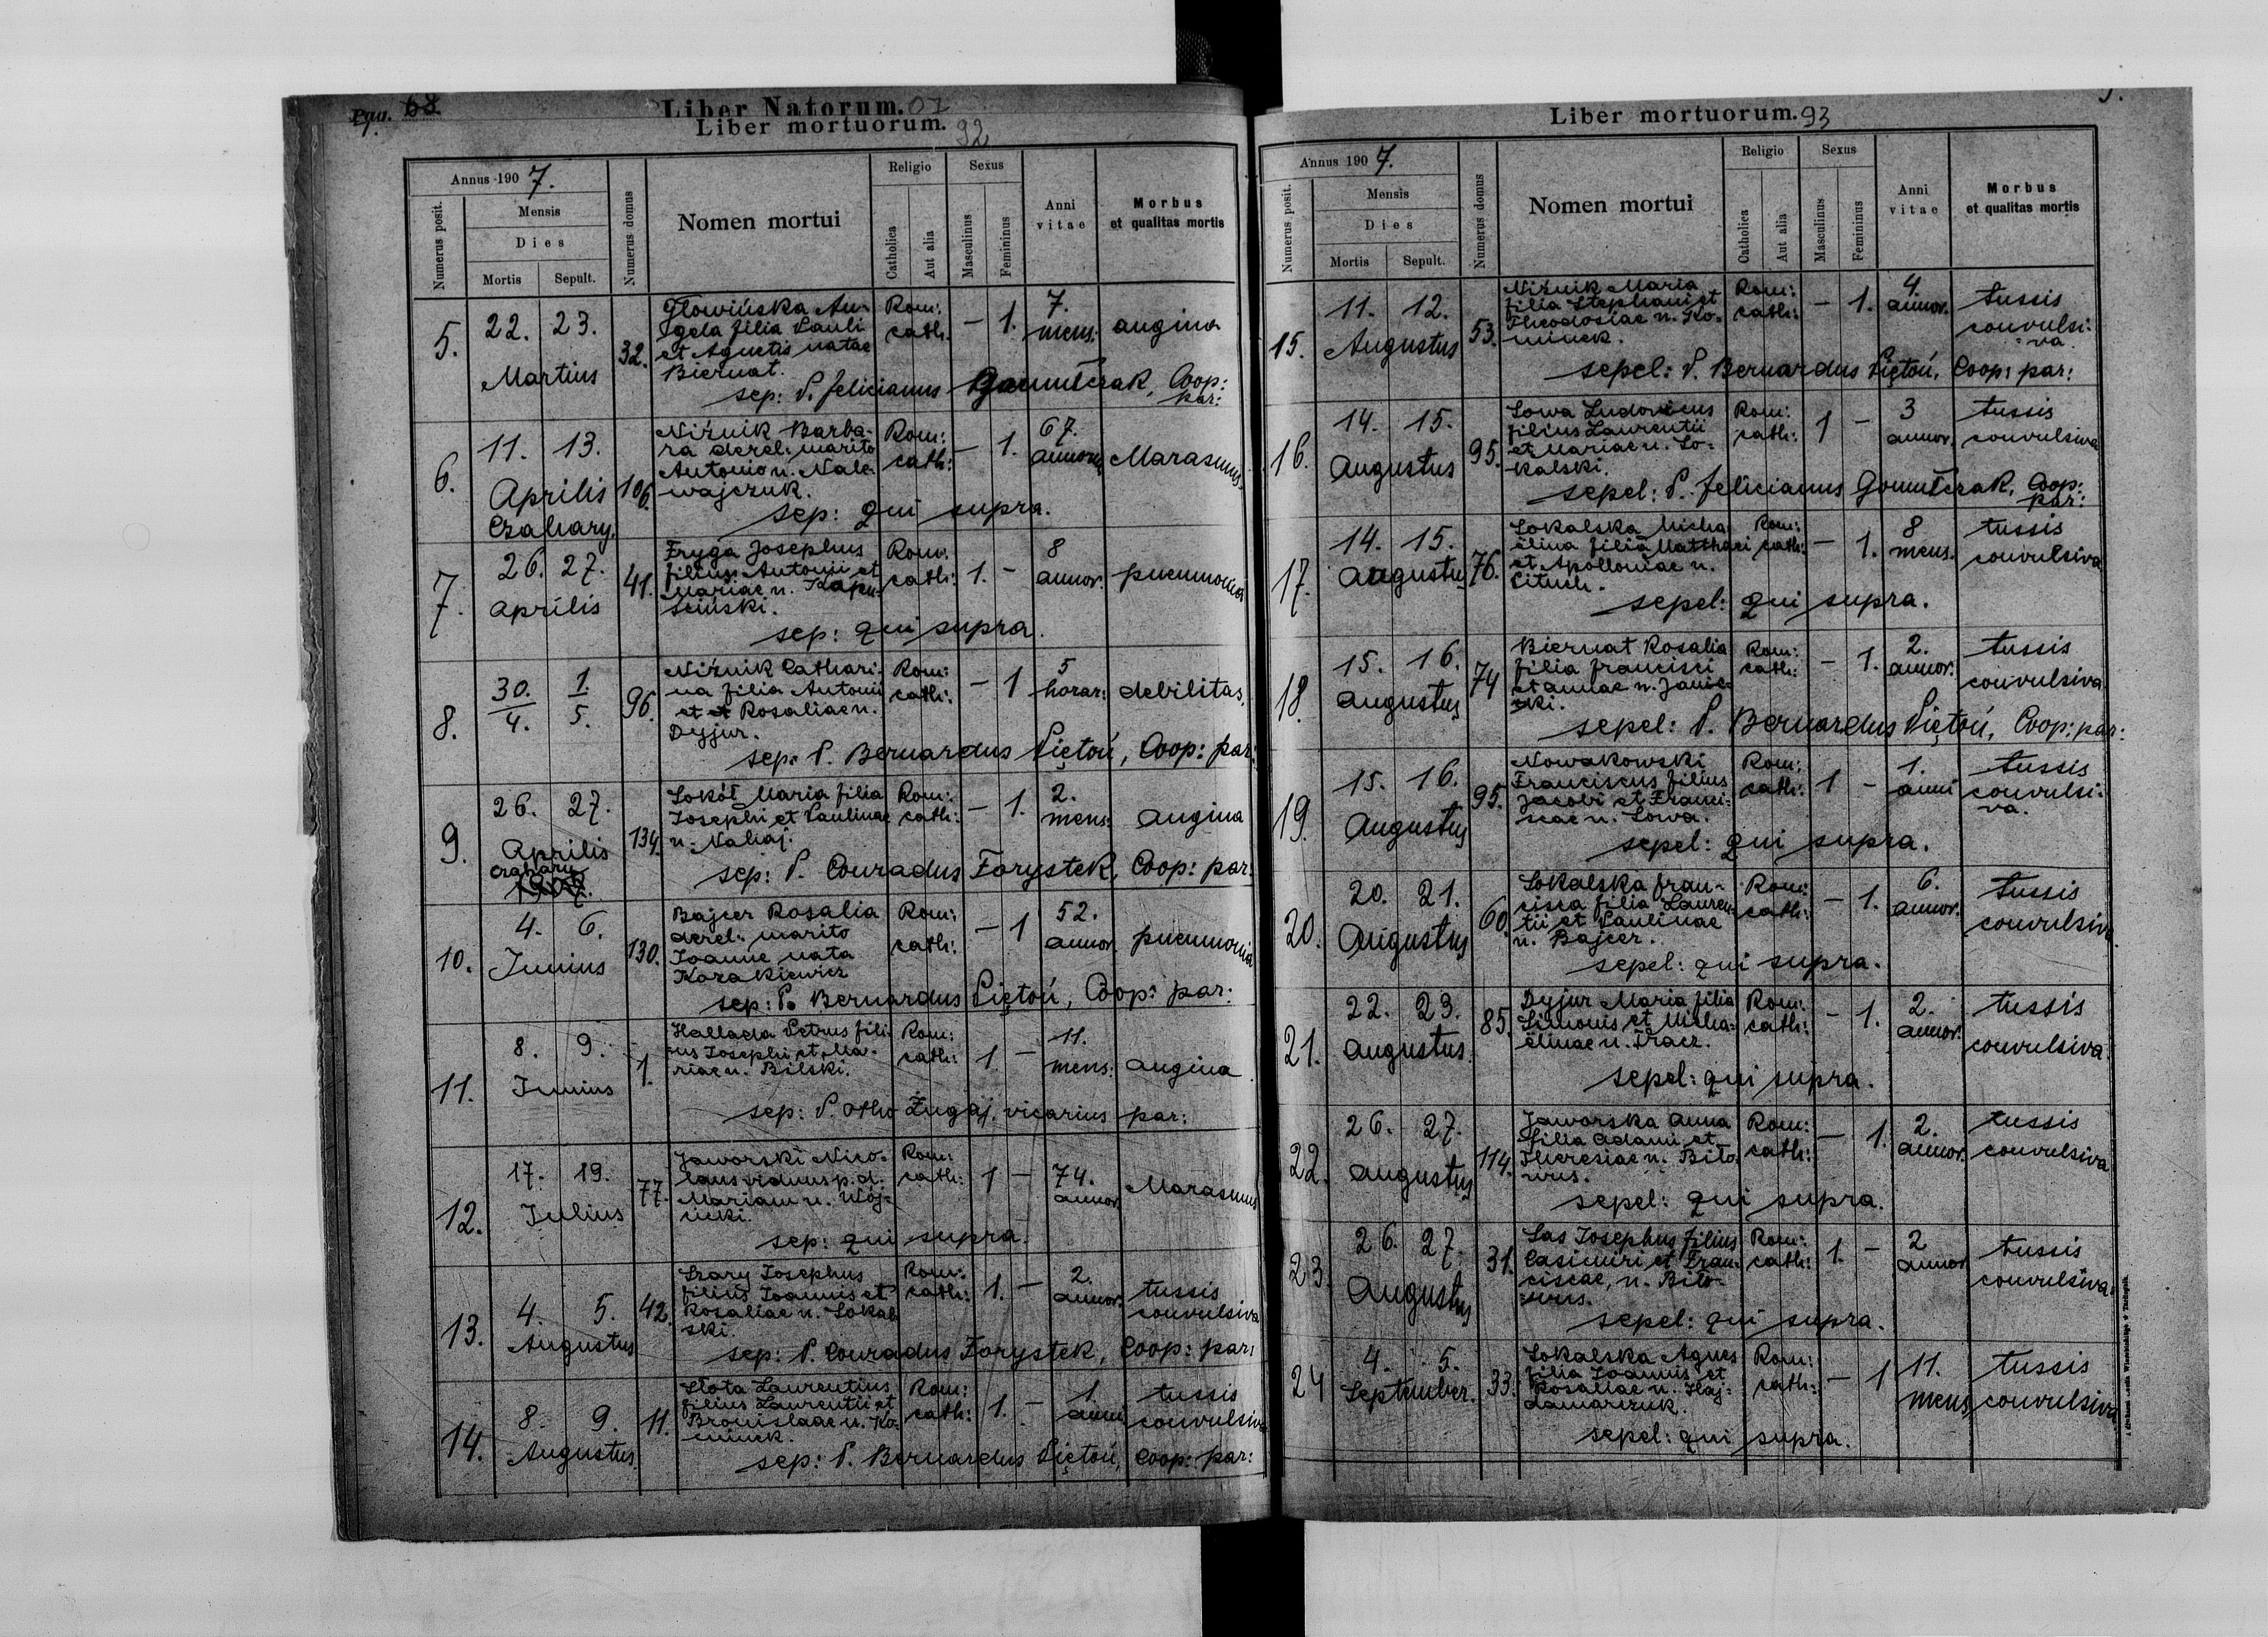 Pag. 68
Liber Natorum. 07
Liber mortuorum. 92
Annus 190 7.
Numerus posit.
Mensis
Dies
Mortis Sepult.
Numerus domus
Nomen mortui
Religio
Catholica
Aut alia
Sexus
Masculinus
Femininus
Anni vitae
Morbus
et qualitas mortis
5. 22. 23. Martius 32.
Głowińska An-
gela filia Pauli
et Agnetis natae
Biernat.
Rom: cath. – 1. 7. mens. angina
sep: P. Felicianus Gomułczak, Coop: par:
6. 11. 13. Aprilis Czahary. 106.
Niżnik Barba-
ra derel: marito
Antonio n. Nale-
wajczuk.
Rom: cath: – 1. 67. annorum Marasmus
sep: qui supra.
7. 26. 27. Aprilis 41.
Fryga Josephus
filius Antonii et
Mariae n. Kapu-
ściński.
Rom: cath: 1. – 8 annor. pneumonia
sep: qui supra.
8. 30./4. 1./5. 96.
Niżnik Cathari-
na filia Antonii
et et Rosaliae n.
Dyjur.
Rom: cath: – 1 5 horar: debilitas.
sep: P. Bernardus Piętoń, Coop: par:
9. 26. 27. Aprilis Czahary 134.
Sokół Maria filia
Josephi et Paulinae
n. Nahaj.
Rom: cath: – 1. 2. mens: angina
sep: P. Conradus Forystek, Coop: par:
10. 4. 6. Junius 130.
Bajcer Rosalia
derel: marito
Joanne nata
Kozakiewicz
Rom: cath: – 1 52. annor. pneumonia
sep: P. Bernardus Piętoń, Coop: par:
11. 8. 9. Junius 1.
Hallada Petrus fili-
us Josephi et Ma-
riae n. Bilski.
Rom: cath: 1 – 11. mens: angina
sep: P. Otho Żugaj, vicarius par:
12. 17. 19. Julius 77.
Jaworski Nico-
laus viduus p. d.
Mariam n. Wój-
cicki.
Rom: cath: 1 – 74. annor. Marasmus
sep: qui supra.
13. 4. 5. Augustus 42.
Szary Josephus
filius Joannis et
Rosaliae n. Sokal-
ski.
Rom: cath: 1. – 2. annor. tussis convulsiva
sep: P. Conradus Forystek, Coop: par:
14. 8. 9. Augustus. 11.
Słota Laurentius
filius Laurentii et
Bronislaae n. Ko-
minek.
Rom: cath: 1. – 1. anni tussis convulsiva
sep: P. Bernardus Piętoń, Coop: par:
Liber mortuorum. 93
Annus 190 7.
Numerus posit.
Mensis
Dies
Mortis Sepult.
Numerus domus
Nomen mortui
Religio
Catholica
Aut alia
Sexus
Masculinus
Femininus
Anni vitae
Morbus
et qualitas mortis
15. 11. 12. Augustus 53.
Niżnik Maria
filia Stephani et
Theodosiae n. Ko-
minek.
Rom: cath: – 1. 4. annor. tussis convulsi-
va.
sepel: P. Bernardus Piętoń, Coop: par:
16. 14. 15. Augustus 95.
Sowa Ludovicus
filius Laurentii
et Mariae n. So-
kalski.
Rom: cath: 1 – 3 annor. tussis convulsiva
sepel: P. Felicianus Gomułczak, Coop: par:
17. 14. 15. Augustus 76.
Sokalska Micha-
ëlina filia Matthaei
et Apolloniae n.
Cituch.
Rom: cath: – 1. 8 mens. tussis convulsiva
sepel: qui supra.
18. 15. 16. Augustus 74
Biernat Rosalia
filia Francisci
et Annae n. Janic-
ki.
Rom: cath: – 1. 2. annor. tussis convulsiva
sepel: P. Bernardus Piętoń, Coop: par:
19. 15. 16. Augustus 95.
Nowakowski
Franciscus filius
Jacobi et Franci-
scae n. Sowa.
Rom: cath: 1 – 1. anni tussis convulsi-
va.
sepel: qui supra.
20. 20. 21. Augustus 60.
Sokalska Fran-
cisca filia Lauren-
tii et Paulinae
n. Bajcer.
Rom: cath: – 1. 6. annor. tussis convulsiva
sepel: qui supra.
21. 22. 23. Augustus. 85.
Dyjur Maria filia
Simonis et Micha-
ëlinae n. Tracz.
Rom: cath: – 1. 2. annor. tussis convulsiva
sepel: qui supra.
22. 26. 27. Augustus 114.
Jaworska Anna
filia Adami et
Theresiae n. Bito-
wus.
Rom: cath: – 1. 2. annor. tussis convulsiva
sepel: qui supra.
23. 26. 27. Augustus 31.
Las Josephus filius
Casimiri et Fran-
ciscae, n. Bito-
wus.
Rom: cath: 1. – 2 annor. tussis convulsiva
sepel: qui supra.
24 4. 5. September. 33.
Sokalska Agnes
filia Joannis et
Rosaliae n. Haj-
damarczuk.
Rom: cath: – 1 11. mens. tussis convulsiva
sepel: qui supra.